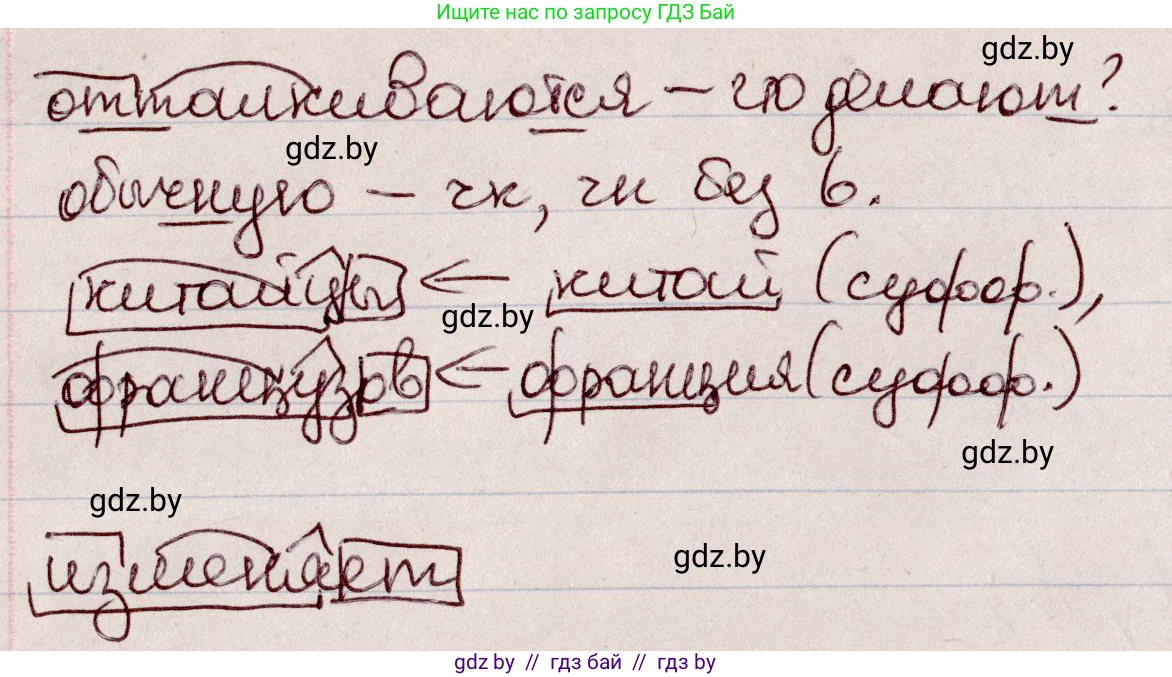 Ищите нас по запросу ГДЗ Бай
gdz.by
отталкиваются – что делают?
gdz.by
обычную – чк, чн без ь.
китайцы ← китай (суфф.),
gdz.by
французов ← франция (суфф.)
gdz.by
gdz.by
изменяет
gdz.by
gdz by // гдз бай // гдз by